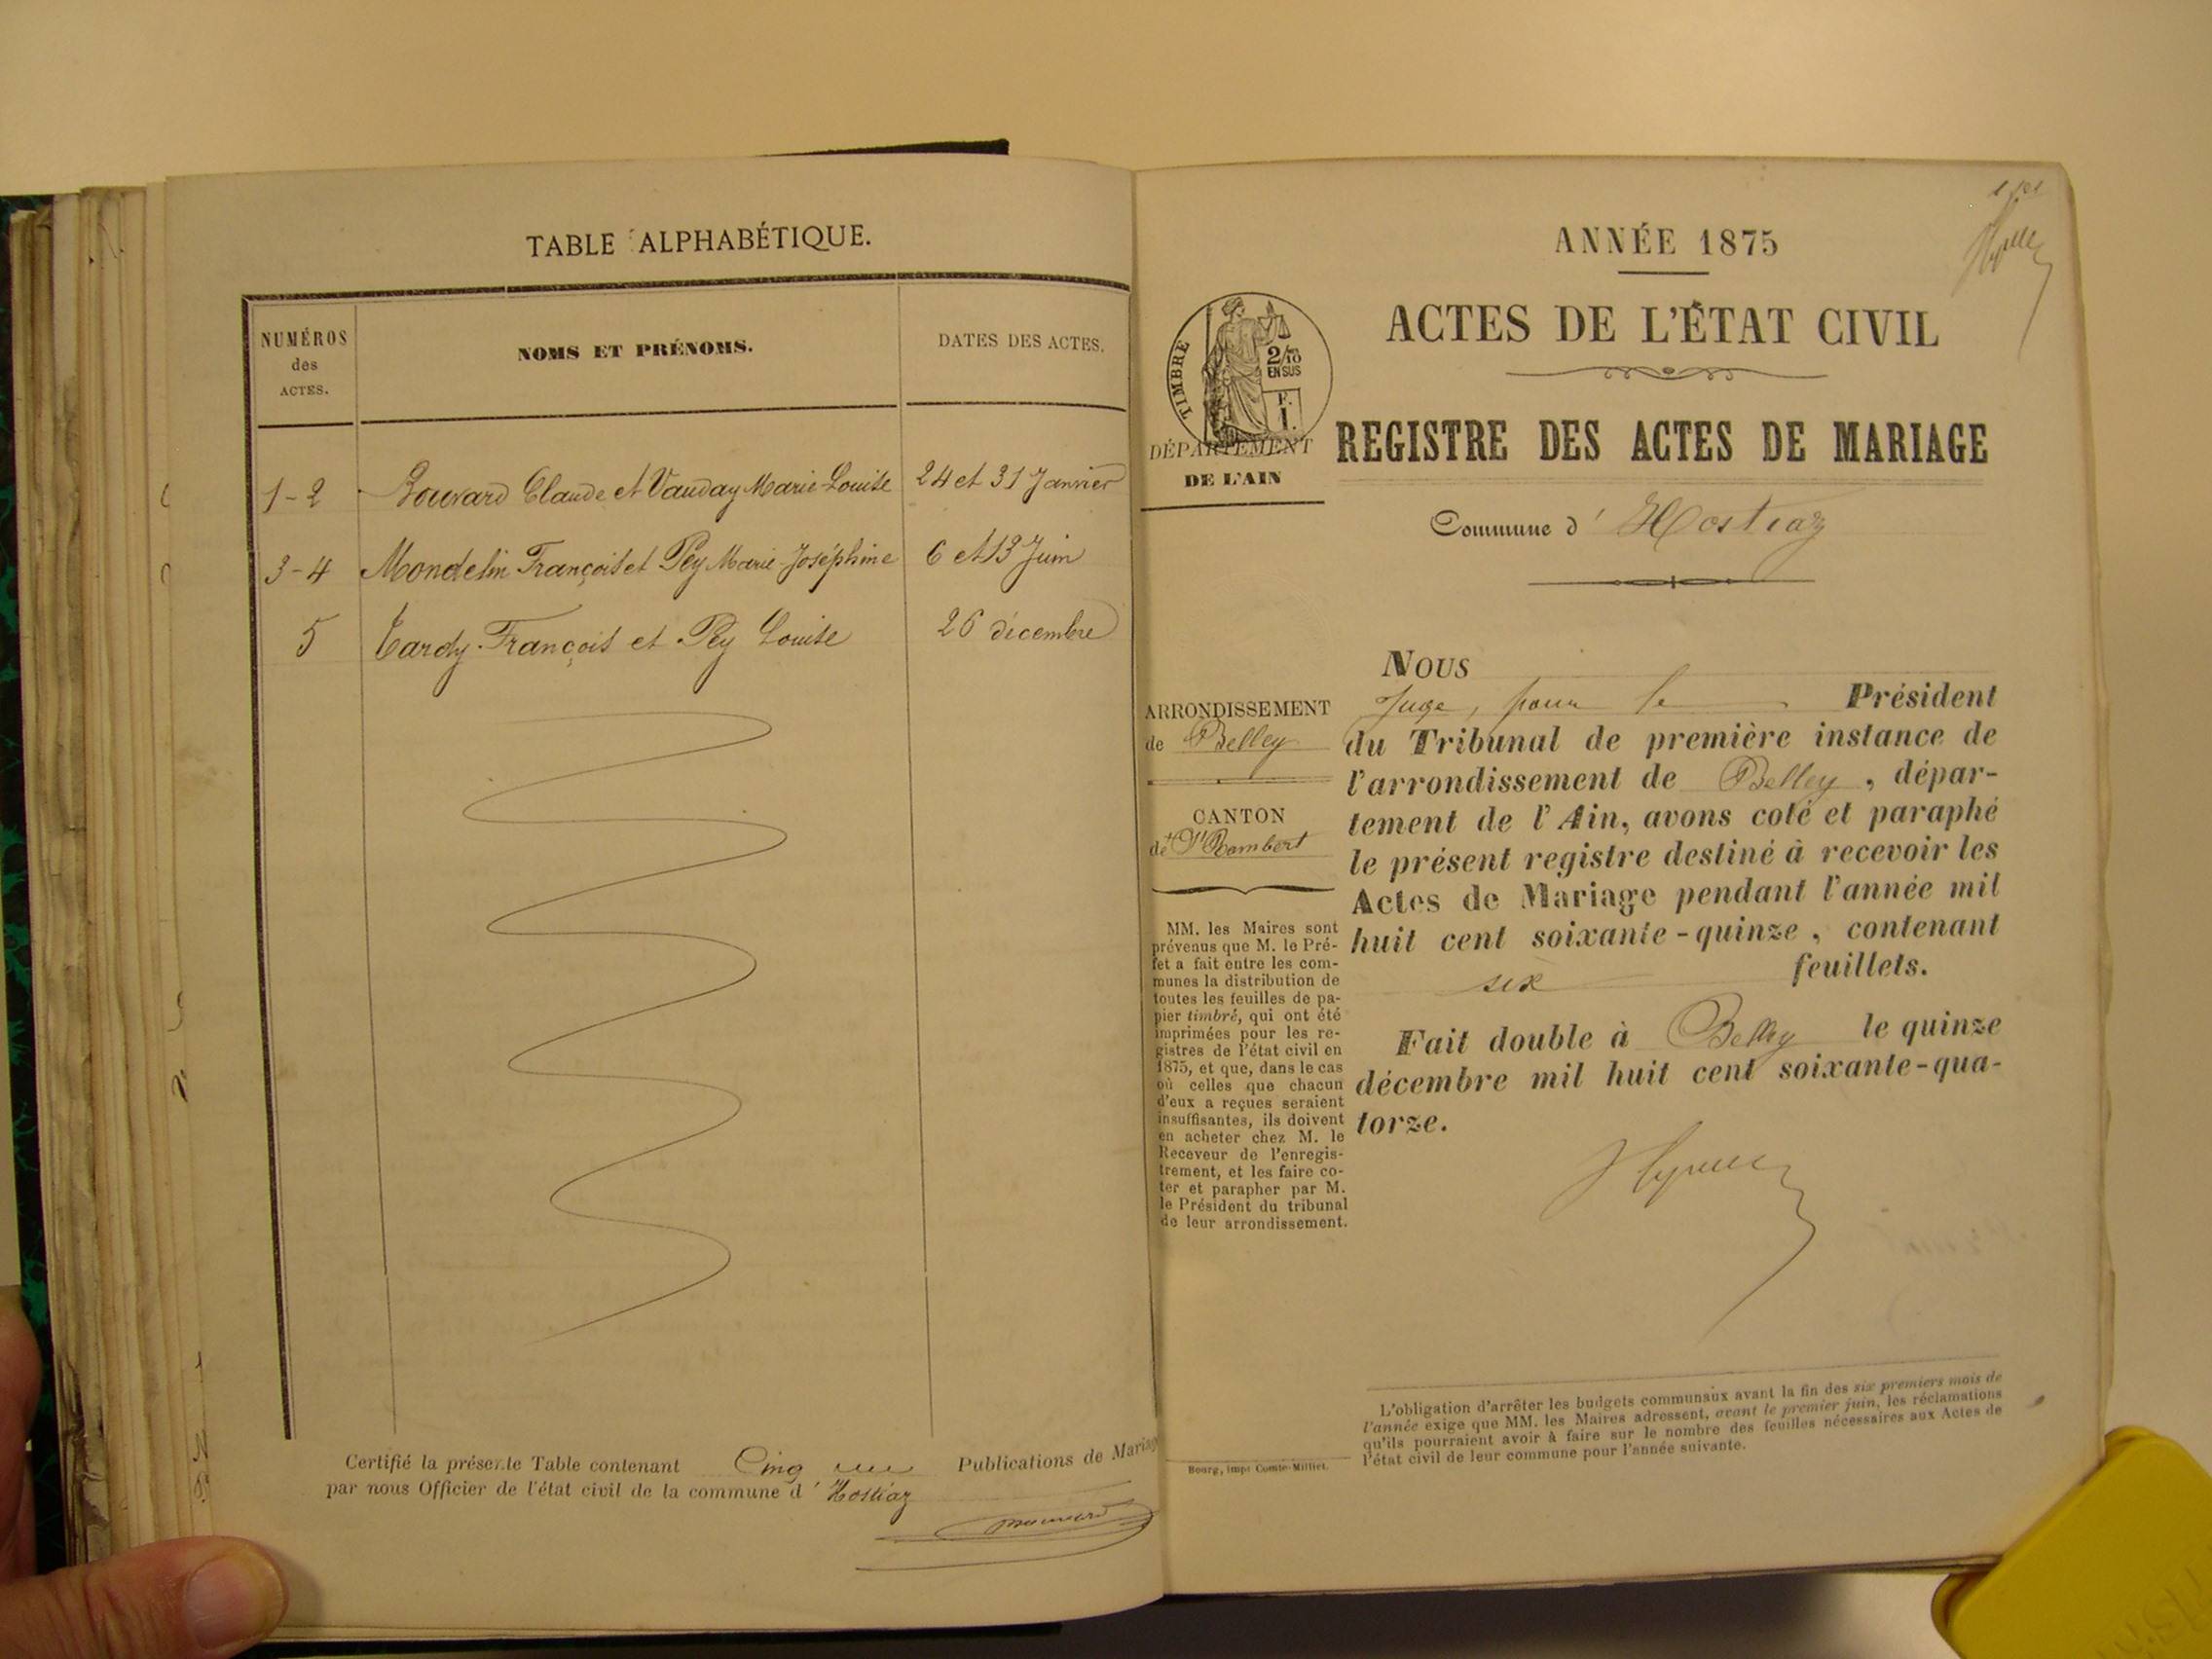 TABLE ALPHABÉTIQUE.
NUMÉROS
des
ACTES.
NOMS ET PRÉNOMS.
DATES DES ACTES.
1-2 Bouvard Claude et Vauday Marie-Louise 24 et 31 Janvier
3-4 Mondelin François et Pey Marie-Joséphine 6 et 13 Juin
5 Tardy François et Pey Louise 26 décembre
Certifié la présente Table contenant Cinq Publications de Mariag
par nous Officier de l'état civil de la commune d' Hostiaz
ANNÉE 1875
ACTES DE L'ÉTAT CIVIL
TIMBRE
2/10
EN SUS
F.
1.
REGISTRE DES ACTES DE MARIAGE
DÉPARTEMENT
DE L'AIN
Commune d' Hostiaz
ARRONDISSEMENT
de Belley
CANTON
de St Rambert
MM. les Maires sont
prévenus que M. le Pré-
fet a fait entre les com-
munes la distribution de
toutes les feuilles de pa-
pier timbré, qui ont été
imprimées pour les re-
gistres de l'état civil en
1875, et que, dans le cas
où celles que chacun
d'eux a reçues seraient
insuffisantes, ils doivent
en acheter chez M. le
Receveur de l'enregis-
trement, et les faire co-
ter et parapher par M.
le Président du tribunal
de leur arrondissement.
Nous
Juge, pour le Président
du Tribunal de première instance de
l'arrondissement de Belley, dépar-
tement de l'Ain, avons coté et paraphé
le présent registre destiné à recevoir les
Actes de Mariage pendant l'année mil
huit cent soixante-quinze, contenant
six feuillets.
Fait double à Belley le quinze
décembre mil huit cent soixante-qua-
torze.
L'obligation d'arrêter les budgets communaux avant la fin des six premiers mois de
l'année exige que MM. les Maires adressent, avant le premier juin, les réclamations
qu'ils pourraient avoir à faire sur le nombre des feuilles nécessaires aux Actes de
l'état civil de leur commune pour l'année suivante.
Bourg, impr Comte-Milliet.